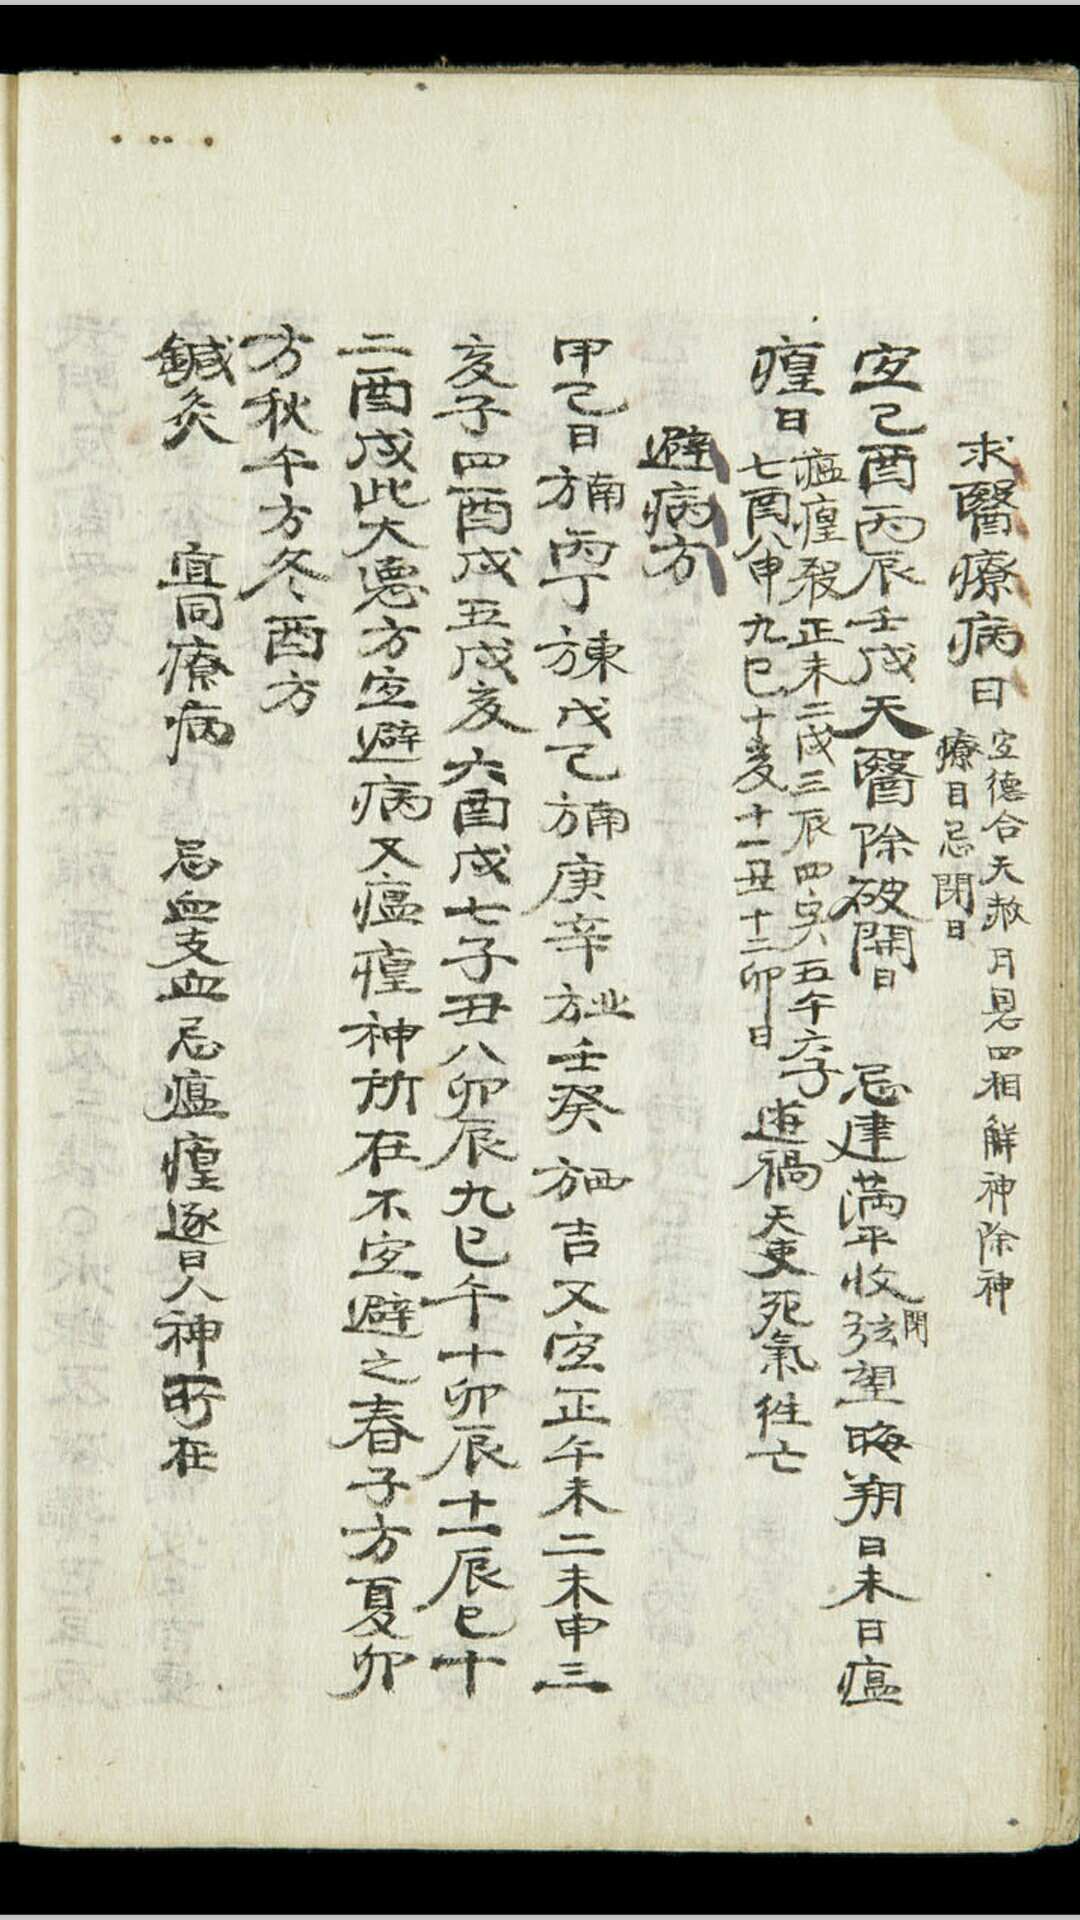 求醫療病日 宜德合天赦月恩四相解神除神
療目忌閉日
宜己酉丙辰壬戌天醫除破開日 忌建滿平收閉弦望晦朔日未日瘟
瘽日 瘟瘽殺正未二戌三辰四寅五午六子
七酉八申九巳十亥十一丑十二卯日 遊禍天吏死氣往亡
避病方
甲己日方南丙丁方東戊己方南庚辛方北壬癸方西吉又宜正午未二未申三
亥子四酉戌五戌亥六酉戌七子丑八卯辰九巳午十卯辰十一辰巳十
二酉戌此大德方宜避病又瘟瘽神所在不宜避之春子方夏卯
方秋午方冬酉方
鍼灸 宜同療病 忌血支血忌瘟瘽逐日人神所在